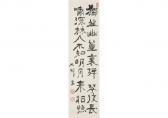 獨坐幽篁裏彈琴復長
嘯深林人不知明月來相照